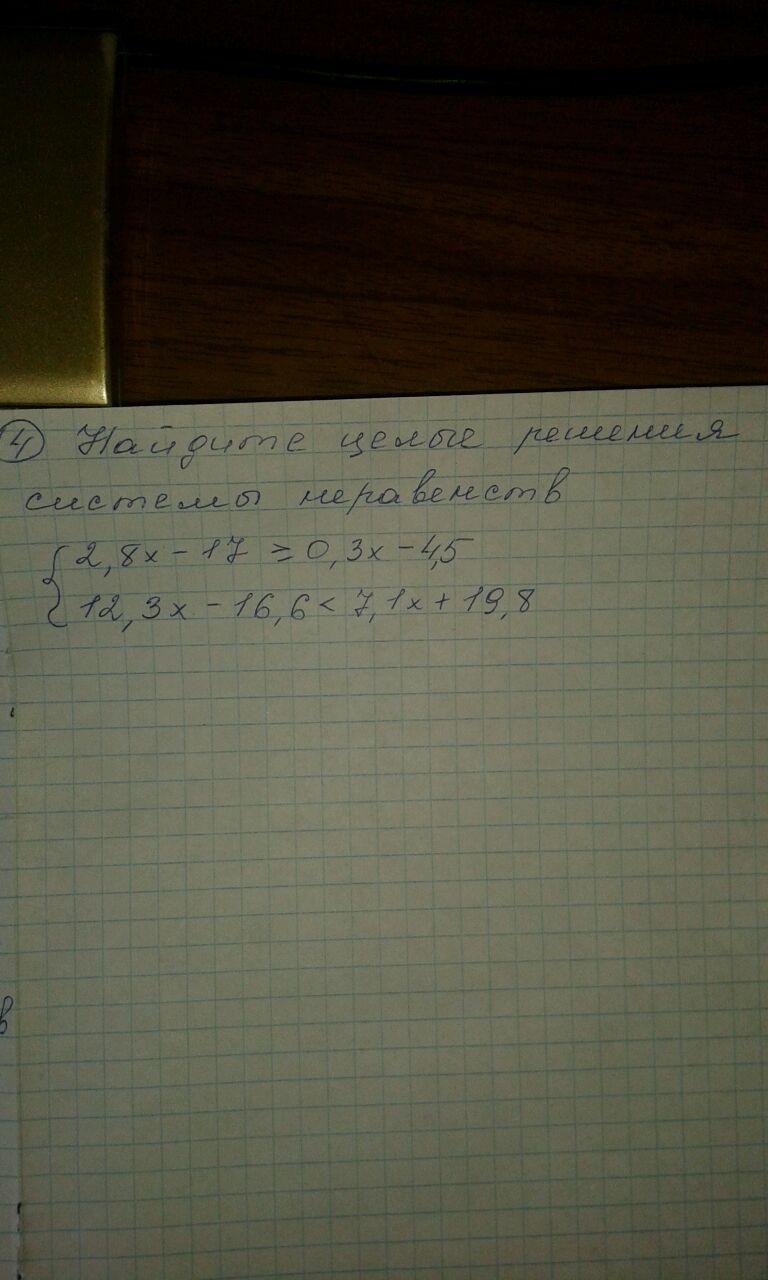 4 Найдите целые решения
системы неравенств
2,8x - 17 ≥ 0,3x - 4,5
12,3x - 16,6 < 7,1x + 19,8
в